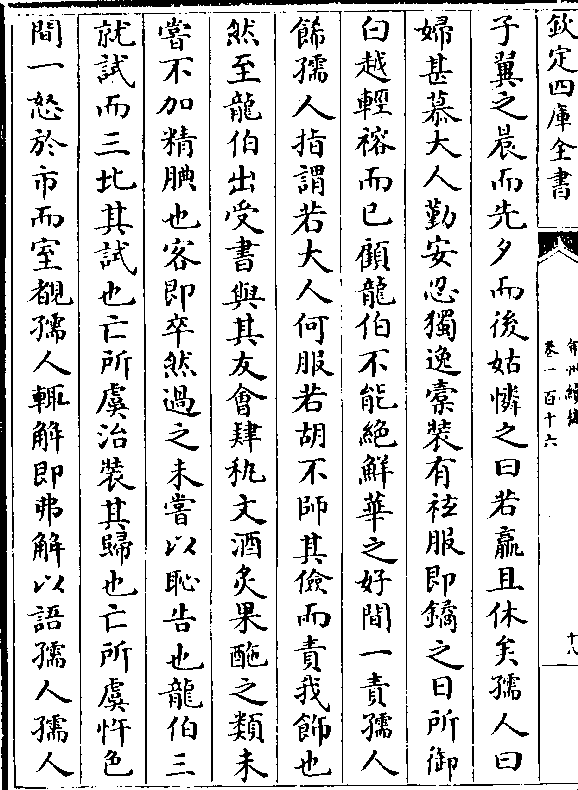 欽定四庫全書
弇州續稿
卷一百十六
十八
子翼之晨而先夕而後姑憐之曰若羸且休矣孺人曰
婦甚慕大人勤安忍獨逸橐裝有袨服即鐍之日所御
白越輕褣而已顧龍伯不能絶鮮華之好間一責孺人
餙孺人指謂若大人何服若胡不師其儉而責我飾也
然至龍伯出受書與其友會肄秇文酒炙果酏之類未
嘗不加精腆也客即卒然過之未嘗以恥告也龍伯三
就試而三北其試也亡所虞治裝其歸也亡所虞忤色
間一怒於市而室覩孺人輒解即弗解以語孺人孺人